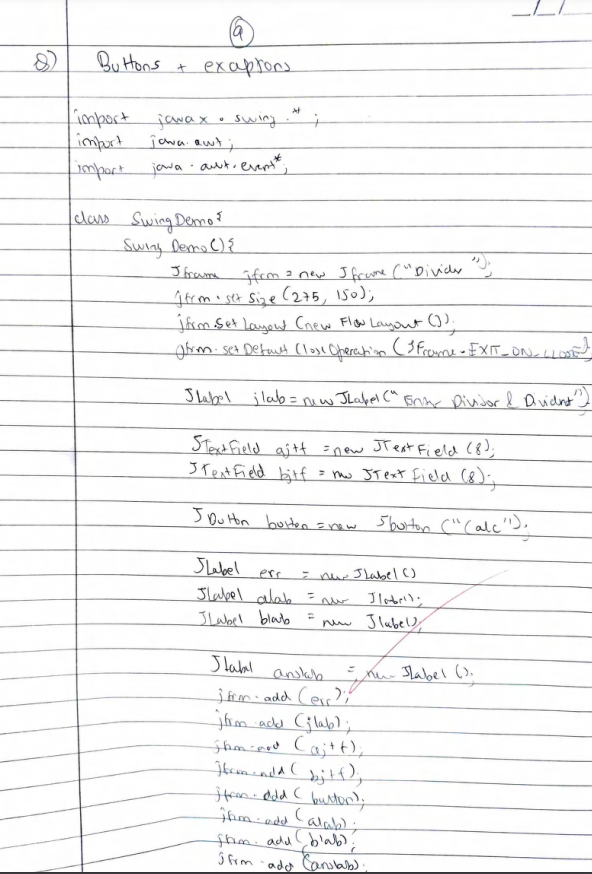 9
8) Buttons + exaptions
import javax . swing .* ;
import java.awt ;
import java . awt . event* ;
class SwingDemo {
Swing Demo () {
Jframe jfrm = new Jframe ("Divider");
jfrm . set Size (275, 150);
jfrm.Set Layout (new FlowLayout ());
jfrm. set Default CloseOperation (JFrame . EXIT_ON_CLOSE);
JLabel jlab = new JLabel (" Enter Divisor & Dividnt")
JTextField ajtf = new JTextField (8);
JTextField bjtf = new JText Field (8);
JButton button = new Jbutton ("Calc");
JLabel err = new JLabel ()
JLabel alab = new Jlabel();
JLabel blab = new Jlabel();
JLabel anslab = new Jlabel ();
jfrm . add (err);
jfrm . add (jlab);
jfrm . add (ajtf);
jfrm . add ( bjtf);
jfrm . add ( button);
jfrm . add (alab);
jfrm . add (blab);
jfrm . add (anslab);